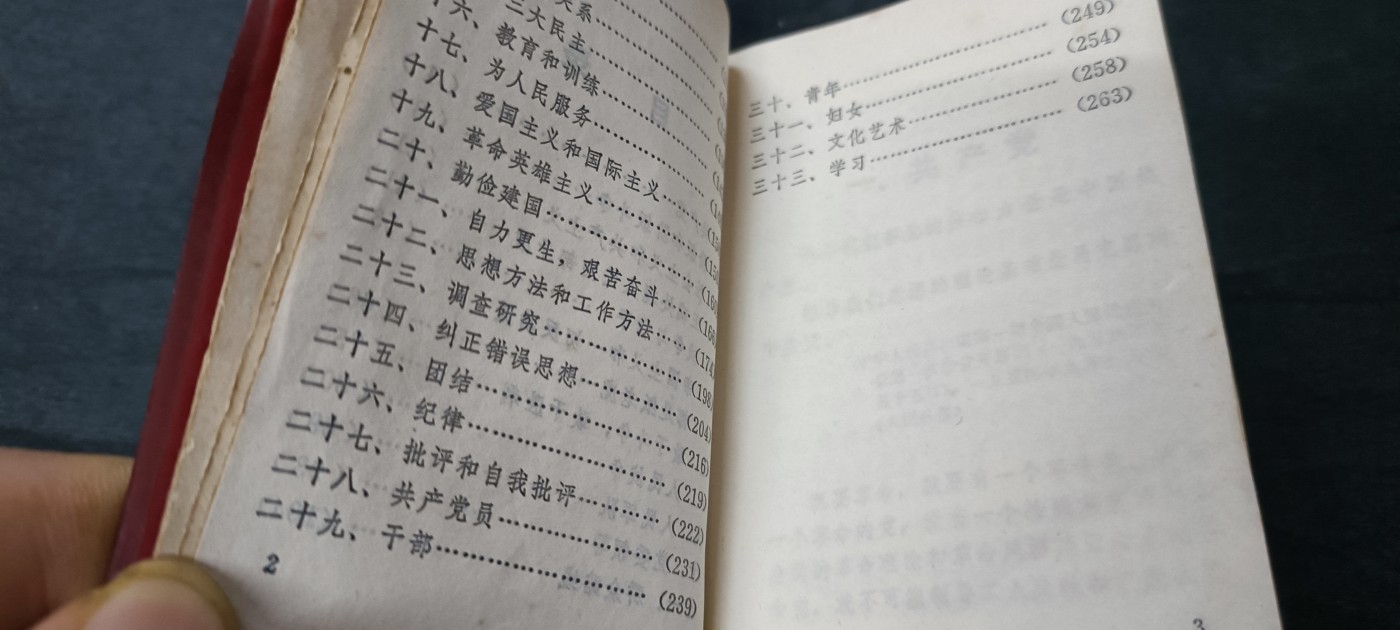 关系
三大民主
十六、教育和训练
十七、为人民服务
十八、爱国主义和国际主义
十九、革命英雄主义
二十、勤俭建国
二十一、自力更生，艰苦奋斗
二十二、思想方法和工作方法……(174
二十三、调查研究……(198
二十四、纠正错误思想……(204
二十五、团结……(216
二十六、纪律……(219)
二十七、批评和自我批评……(222)
二十八、共产党员……(231)
二十九、干部……(239)
2
三十、青年……(249)
三十一、妇女……(254)
三十二、文化艺术……(258)
三十三、学习……(263)
3